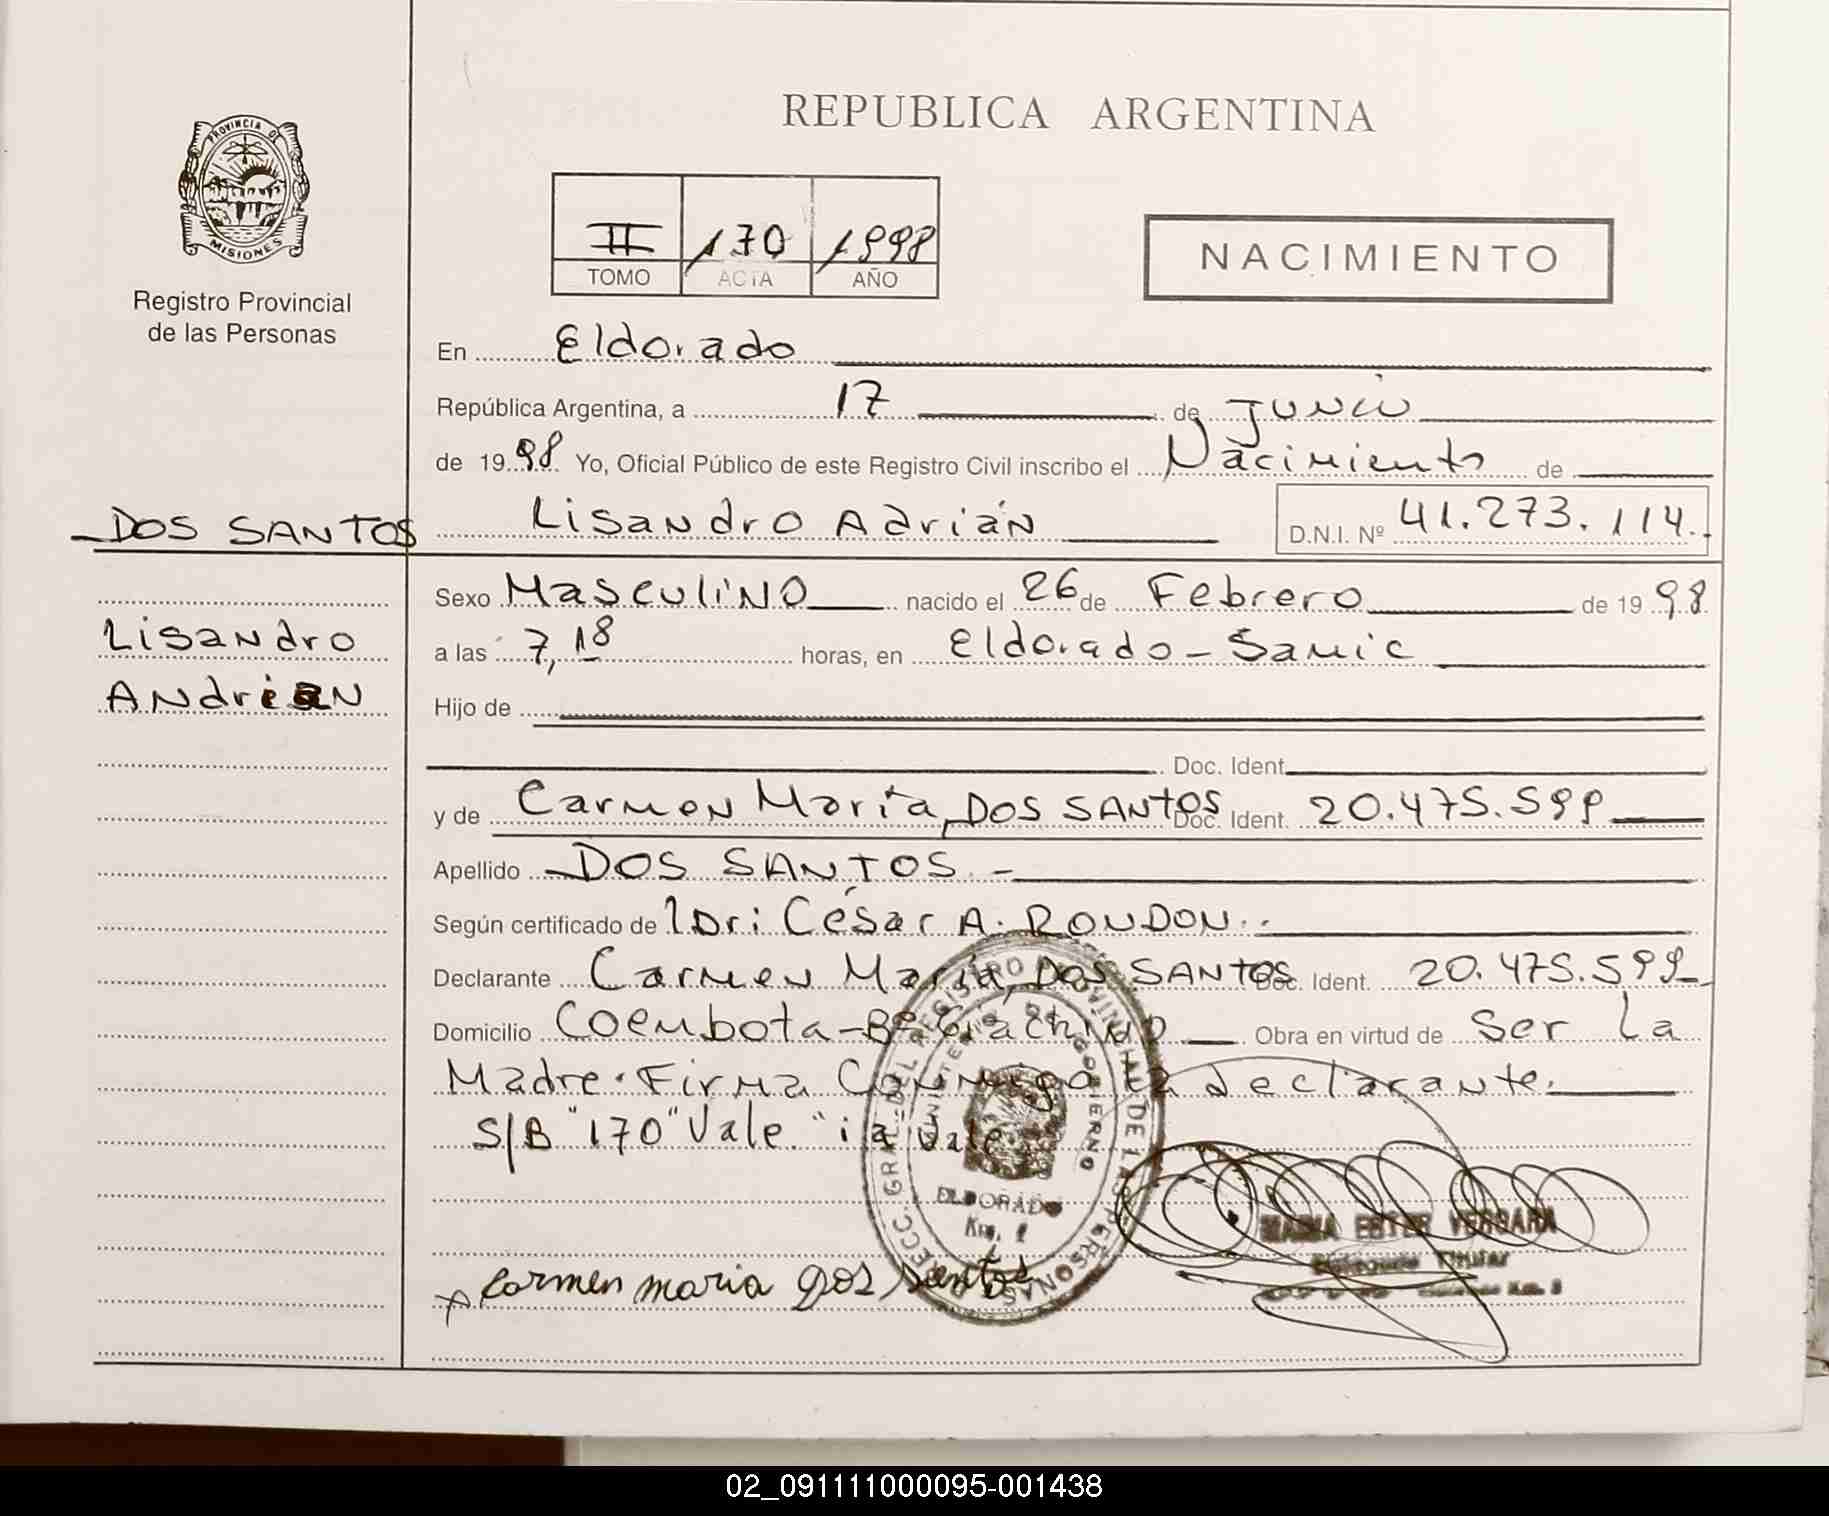 REPUBLICA ARGENTINA
PROVINCIA DE
MISIONES
Registro Provincial
de las Personas
II 170 1998
TOMO ACTA AÑO
NACIMIENTO
En Eldorado
República Argentina, a 17 de Junio
de 1998 Yo, Oficial Público de este Registro Civil inscribo el Nacimiento de
DOS SANTOS Lisandro Adrián D.N.I. Nº 41.273.114.
Sexo Masculino nacido el 26 de Febrero de 1998
Lisandro
a las 7,18 horas, en Eldorado - Samic
Andrian
Hijo de
Doc. Ident.
y de Carmen María, DOS SANTOS Doc. Ident. 20.475.599
Apellido DOS SANTOS.-
Según certificado de Dr: César A. RONDON.-
Declarante Carmen María, DOS SANTOS Doc. Ident. 20.475.599
Domicilio Bº Obra en virtud de Ser La
Madre. Firma Conmigo La declarante.
S/B "170" Vale "ia" Vale
DIRECC. GRAL. DEL REGISTRO PROVINCIAL DE LAS PERSONAS
MINISTERIO DE GOBIERNO
ELDORADO
Km.
MARIA ESTER VERGARA
Titular
Km.
x Carmen maria dos santos
02_091111000095-001438